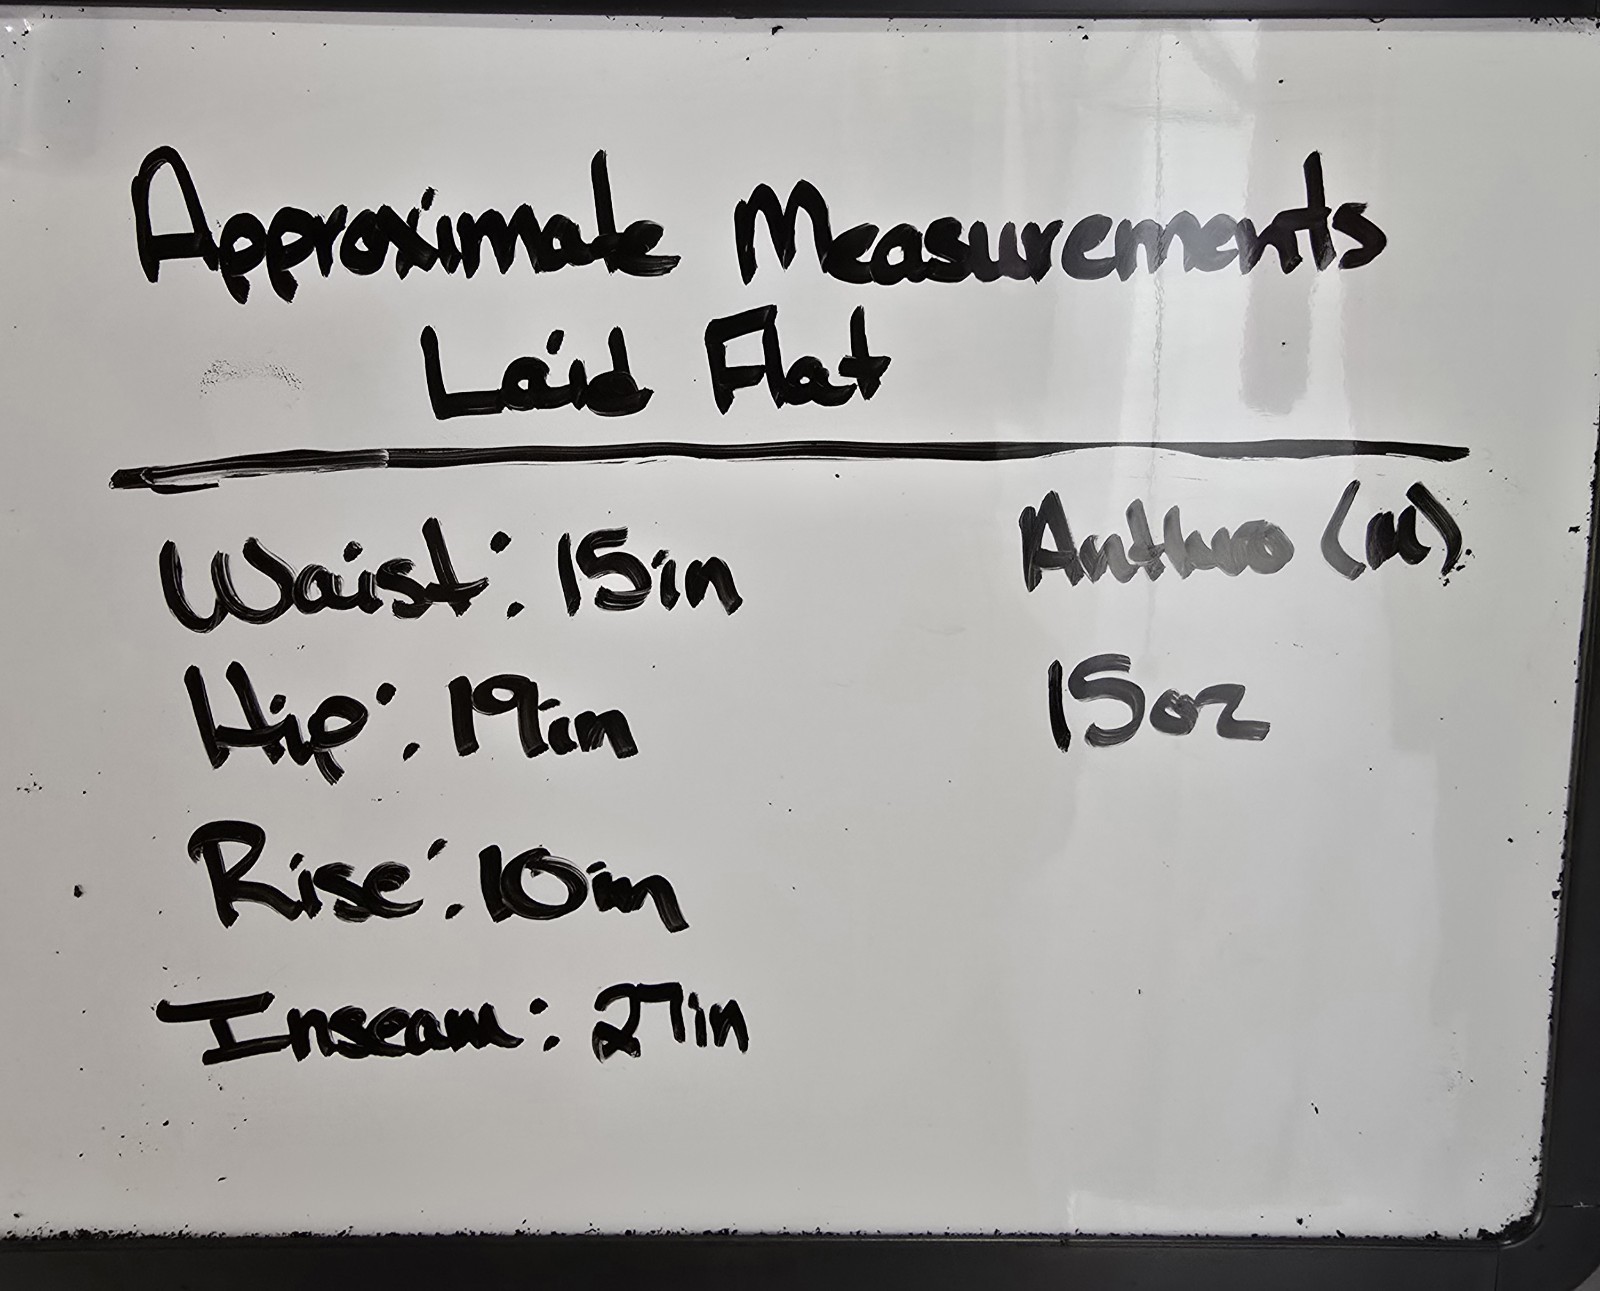 Approximate Measurements
Laid Flat
Waist: 15in
Anthro (M)
Hip: 19in
15oz
Rise: 10in
Inseam: 27in